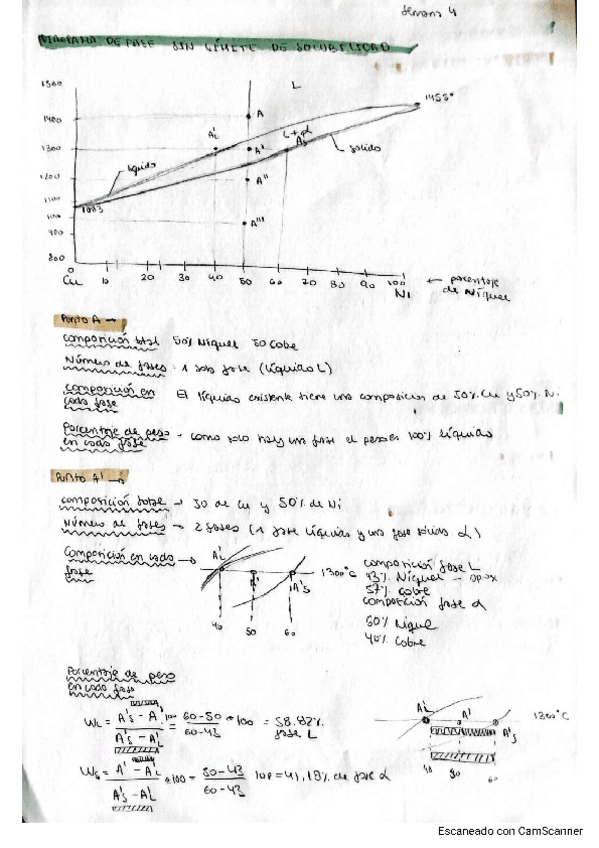 Semana 4
DIAGRAMA DE FASE SIN LÍMITE DE SOLUBILIDAD
1500
L
1455°
1400
A
1300
A'L
A'
L+α
A'S
sólido
líquido
1200
A''
1100
1083
1000
A'''
900
800
0 10 20 30 40 50 60 70 80 90 100
Cu
Ni
← porcentaje de Níquel
Punto A →
Composición total 50% Níquel 50 Cobe
Número de fases: 1 sola fase (líquido L)
Composición en cada fase El líquido existente tiene una composición de 50% Cu y 50% N.
Porcentaje de peso en cada fase - como solo hay una fase el peso es 100% líquido
Punto A' →
composición total → 50 de Cu y 50% de Ni
Número de fases → 2 fases (1 fase líquida y una fase sólida α)
Composición en cada fase →
A'L
A'
A'S
1300°C
40 50 60
composición fase L
43% Níquel - apox
57% cobre
composición fase α
60% níquel
40% cobre
Porcentaje de peso en cada fase
WL = A'S - A' / A'S - A'L 100 = 60-50 / 60-43 * 100 = 58.82% fase L
WS = A' - A'L / A'S - A'L *100 = 50-43 / 60-43 100 = 41,18% de fase α
A'L
A'
A'S
1300°C
40 50 60
Escaneado con CamScanner